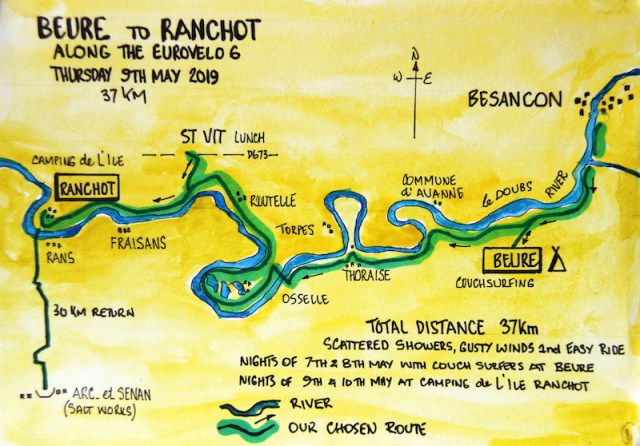 BEURE TO RANCHOT
ALONG THE EUROVELO 6
THURSDAY 9TH MAY 2019
37 KM
N
W E
BESANCON
ST VIT LUNCH
D673
CAMPING de L'ILE
RANCHOT
ROUTELLE
COMMUNE
d'AVANNE
le DOUBS
RIVER
TORPES
FRAISANS
RANS
THORAISE
BEURE
COUCHSURFING
OSSELLE
30 KM RETURN
TOTAL DISTANCE 37Km
SCATTERED SHOWERS, GUSTY WINDS and EASY RIDE
NIGHTS OF 7TH & 8TH MAY WITH COUCH SURFERS AT BEURE
NIGHTS OF 9TH & 10TH MAY AT CAMPING de L'ILE RANCHOT
ARC. et SENAN
(SALT WORKS)
RIVER
OUR CHOSEN ROUTE